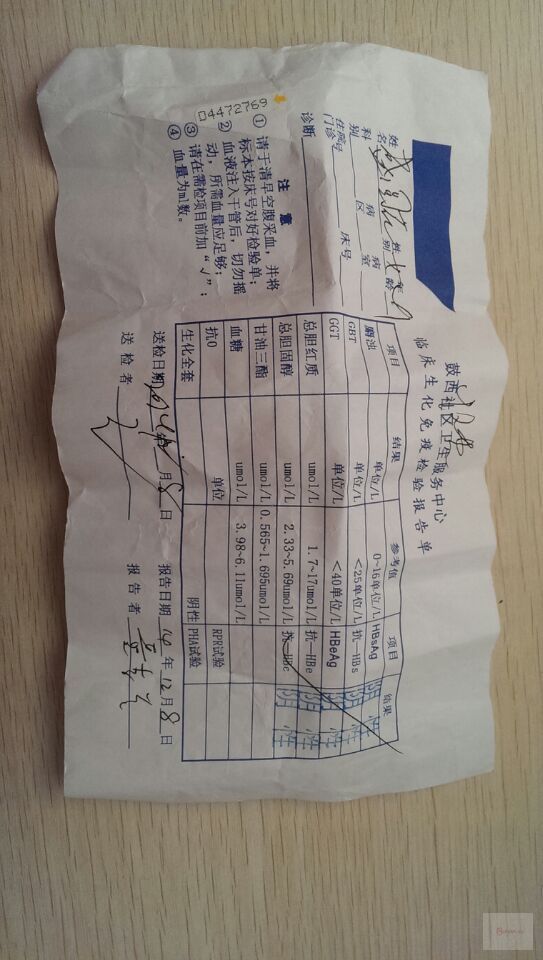 鼓西社区卫生服务中心
临床生化免疫检验报告单
姓名 性别 年龄
科别 病区 病室
住院号
门诊 床号
诊断
注意
① 请于清早空腹采血，并将
标本按床号对好检验单；
② 血液注入干管后，切勿摇
动，所需血量应足够；
③ 请在需检项目前加“√”；
④ 血量为ml数。
04472769
项目 结果 参考值 项目 结果
麝浊 单位/L 0~16单位/L HBsAg 阴性
GBT 单位/L <25单位/L 抗—HBs 阴性
GGT 单位/L <40单位/L HBeAg 阴性
总胆红质 umol/L 1.7~17umol/L 抗—HBe 阴性
总胆固醇 umol/L 2.33~5.69umol/L 抗—HBc 阴性
甘油三酯 umol/L 0.565~1.695umol/L
血糖 umol/L 3.98~6.11umol/L
抗O 单位 RPR试验
生化全套 阴性 PHA试验
送检日期 年 月 8 日 报告日期 14 年 12 月 8 日
送检者 报告者